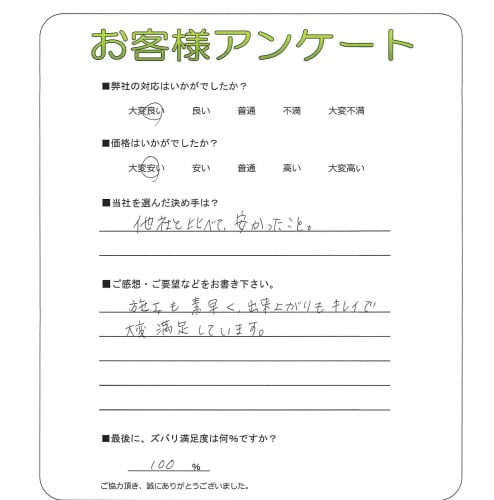 お客様アンケート
■弊社の対応はいかがでしたか？
大変良い 良い 普通 不満 大変不満
■価格はいかがでしたか？
大変安い 安い 普通 高い 大変高い
■当社を選んだ決め手は？
他社と比べて、安かったこと。
■ご感想・ご要望などをお書き下さい。
施工も素早く、出来上がりもキレイで
大変満足しています。
■最後に、ズバリ満足度は何％ですか？
100 ％
ご協力頂き、誠にありがとうございました。